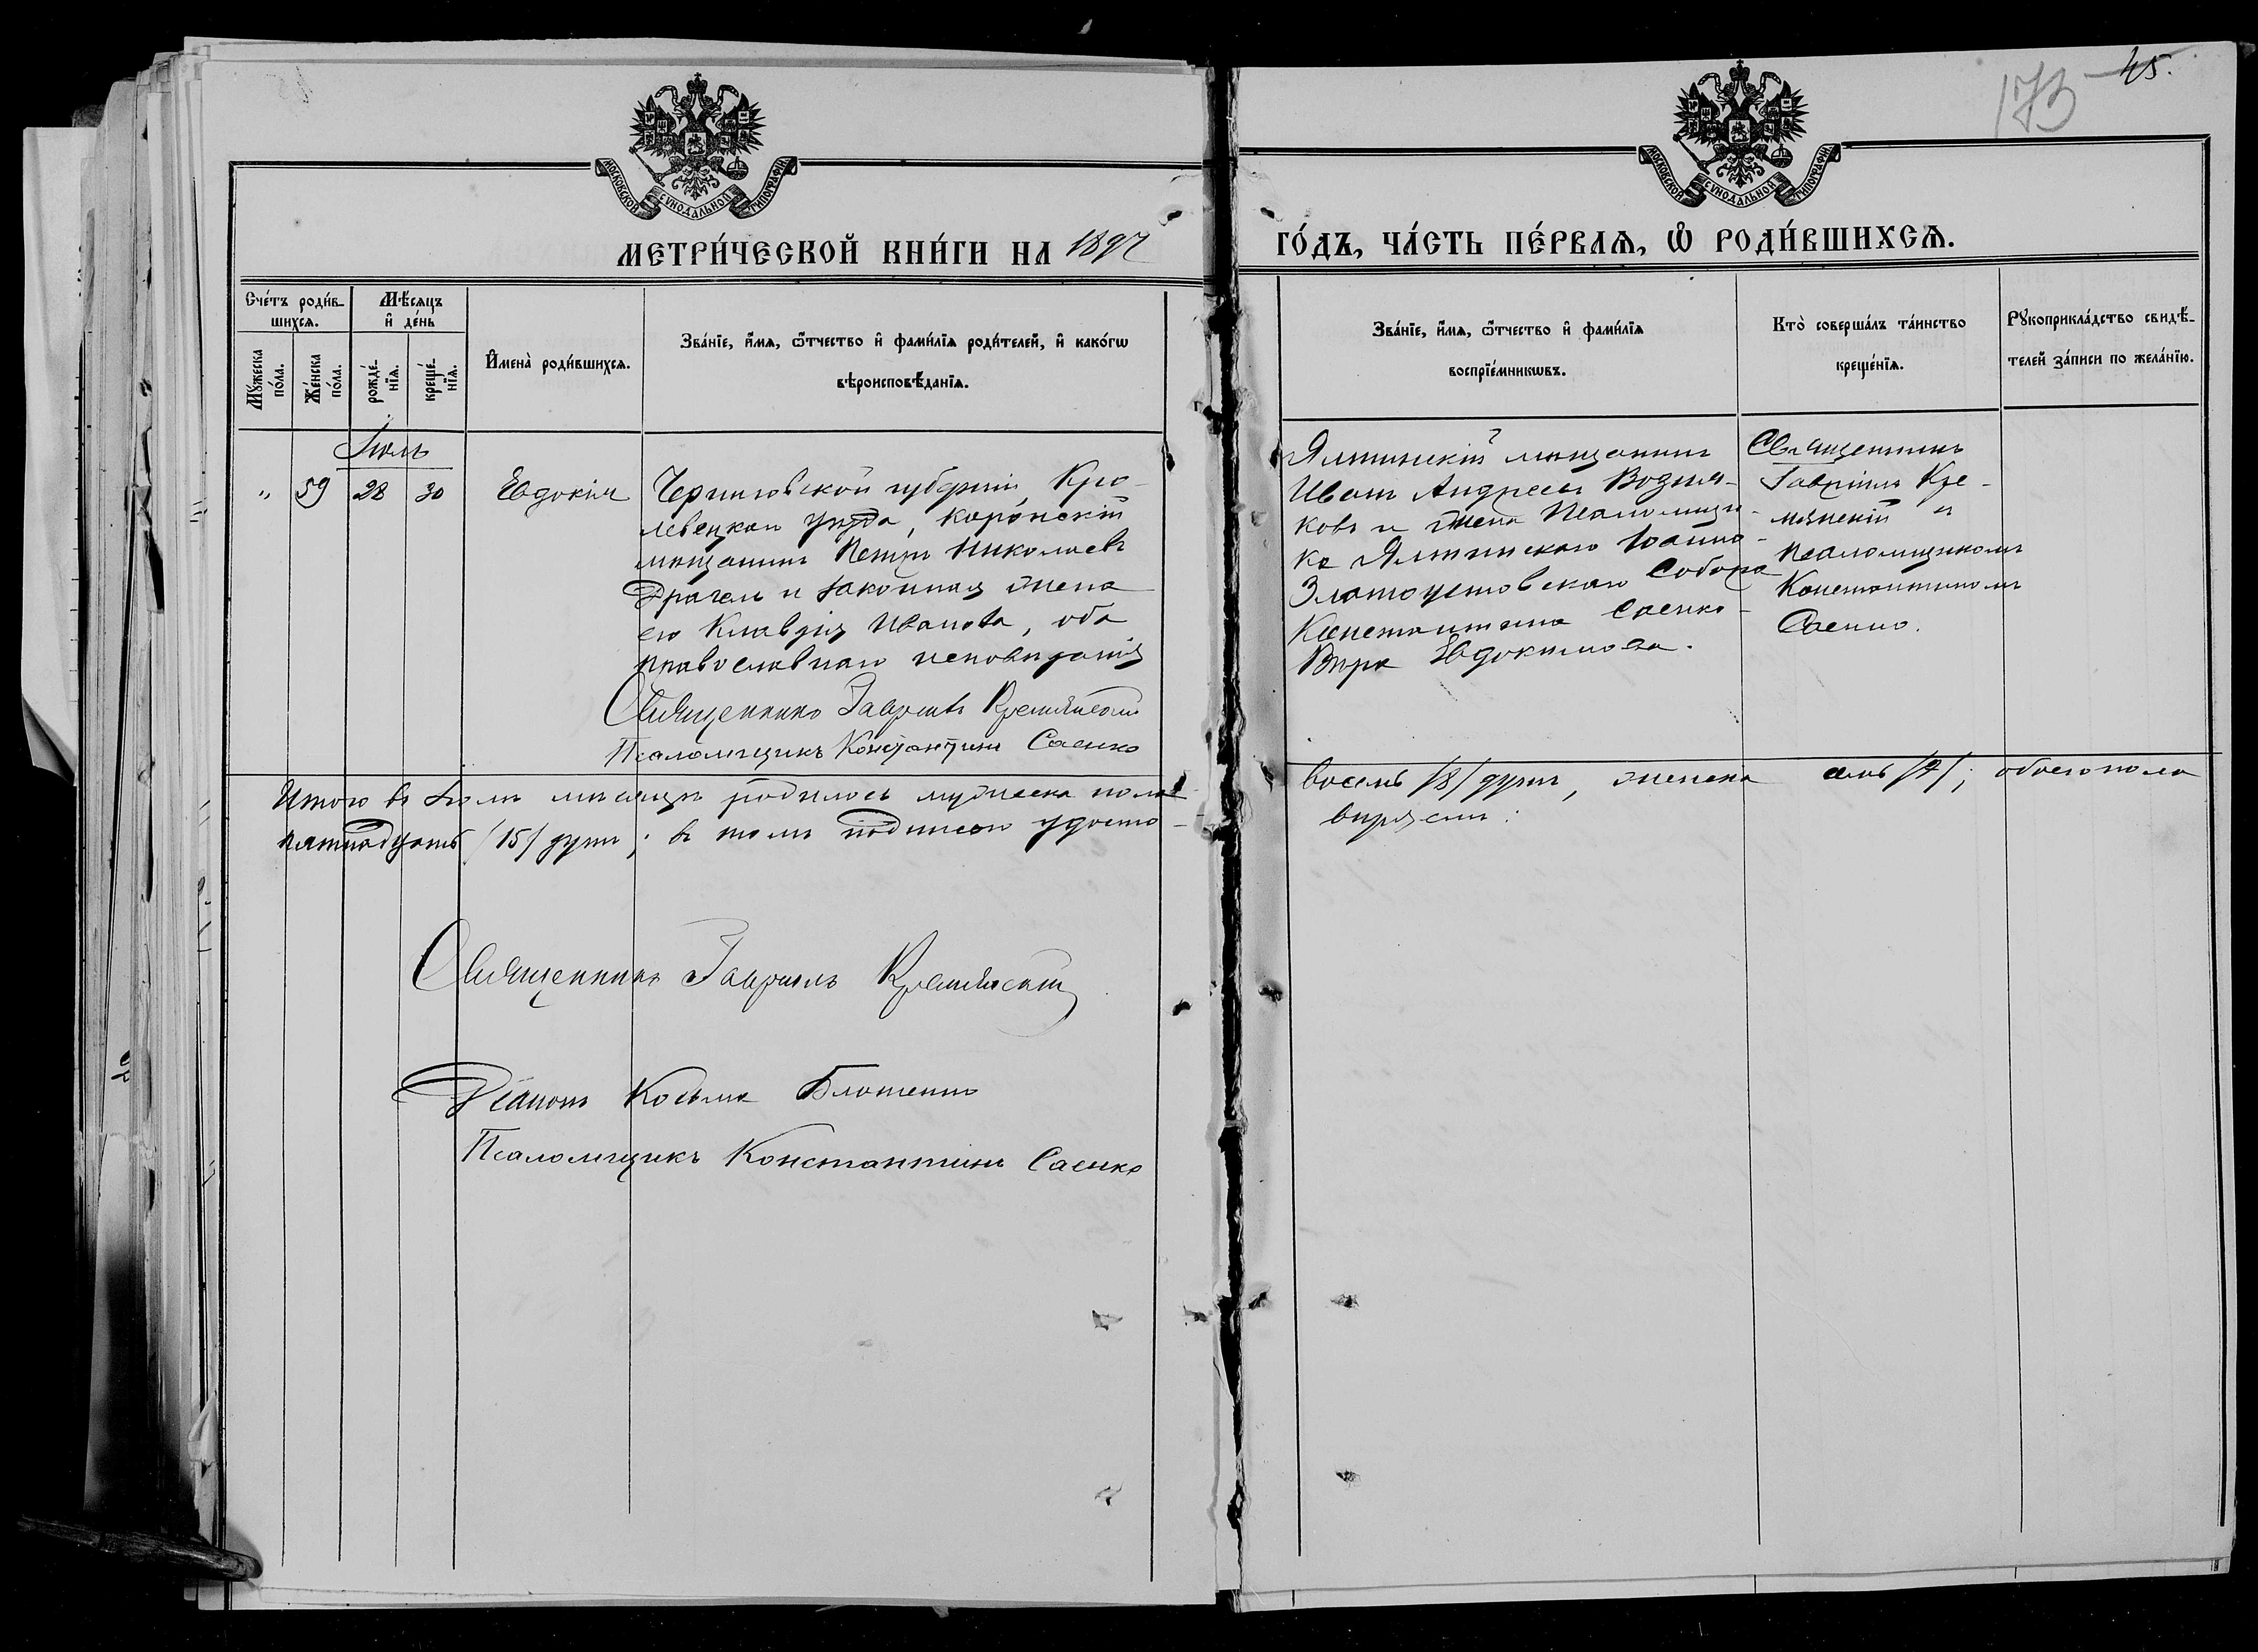 173 45.
МОСКОВСКОЙ СѴНОДАЛЬНОЙ ТИПОГРАФІИ
МОСКОВСКОЙ СѴНОДАЛЬНОЙ ТИПОГРАФІИ
МЕТРИ́ЧЕСКОЙ КНИ́ГИ НА 1897
ГО́ДЪ, ЧА́СТЬ ПЕ́РВАѦ, Ѡ҆ РОДИ́ВШИХСѦ.
Сче́тъ роди́в-
шихсѧ.
Мꙋ́жеска по́ла.
Же́нска по́ла.
Мѣ́сѧцъ
и҆ де́нь
рожде́-нїѧ.
креще́-нїѧ.
И҆мена̀ роди́вшихсѧ.
Зва́нїе, и҆́мѧ, ѻ҆́тчество и҆ фами́лїѧ роди́телей, и҆ како́гѡ
вѣроисповѣ́данїѧ.
Зва́нїе, и҆́мѧ, ѻ҆́тчество и҆ фами́лїѧ
воспрїе́мникѡвъ.
Кто̀ соверша́лъ та́инство
креще́нїѧ.
Рꙋкоприкла́дство свидѣ́-
телей за́писи по жела́нїю.
Іюль
" 59 28 30 Евдокія
Черниговской губерніи, Кро-
левецкаго уѣзда, Коропскій
мѣщанинъ Петръ Николаевъ
Драгель и законная жена
его Клавдія Иванова, оба
православнаго исповѣданія
Священникъ Гавріилъ Кремянскій
Псаломщикъ Константинъ Саенко
Ялтинскій мѣщанинъ
Иванъ Андреевъ Возня-
ковъ и жена Псаломщи-
ка Ялтинскаго Іоанно-
Златоустовскаго Собора
Константина Саенко-
Вѣра Евдокимова.
Священникъ
Гавріилъ Кре-
мянскій и
псаломщикомъ
Константиномъ
Саенко.
Итого въ Іюлѣ мѣсяцѣ родилось мужеска пола
восемь /8/ душъ, женска семь /7/; обоего пола
пятнадцать /15/ душъ; въ томъ подписью удосто-
вѣряемъ:
Священникъ Гавріилъ Кремянскій
Діаконъ Косьма
Псаломщикъ Константинъ Саенко